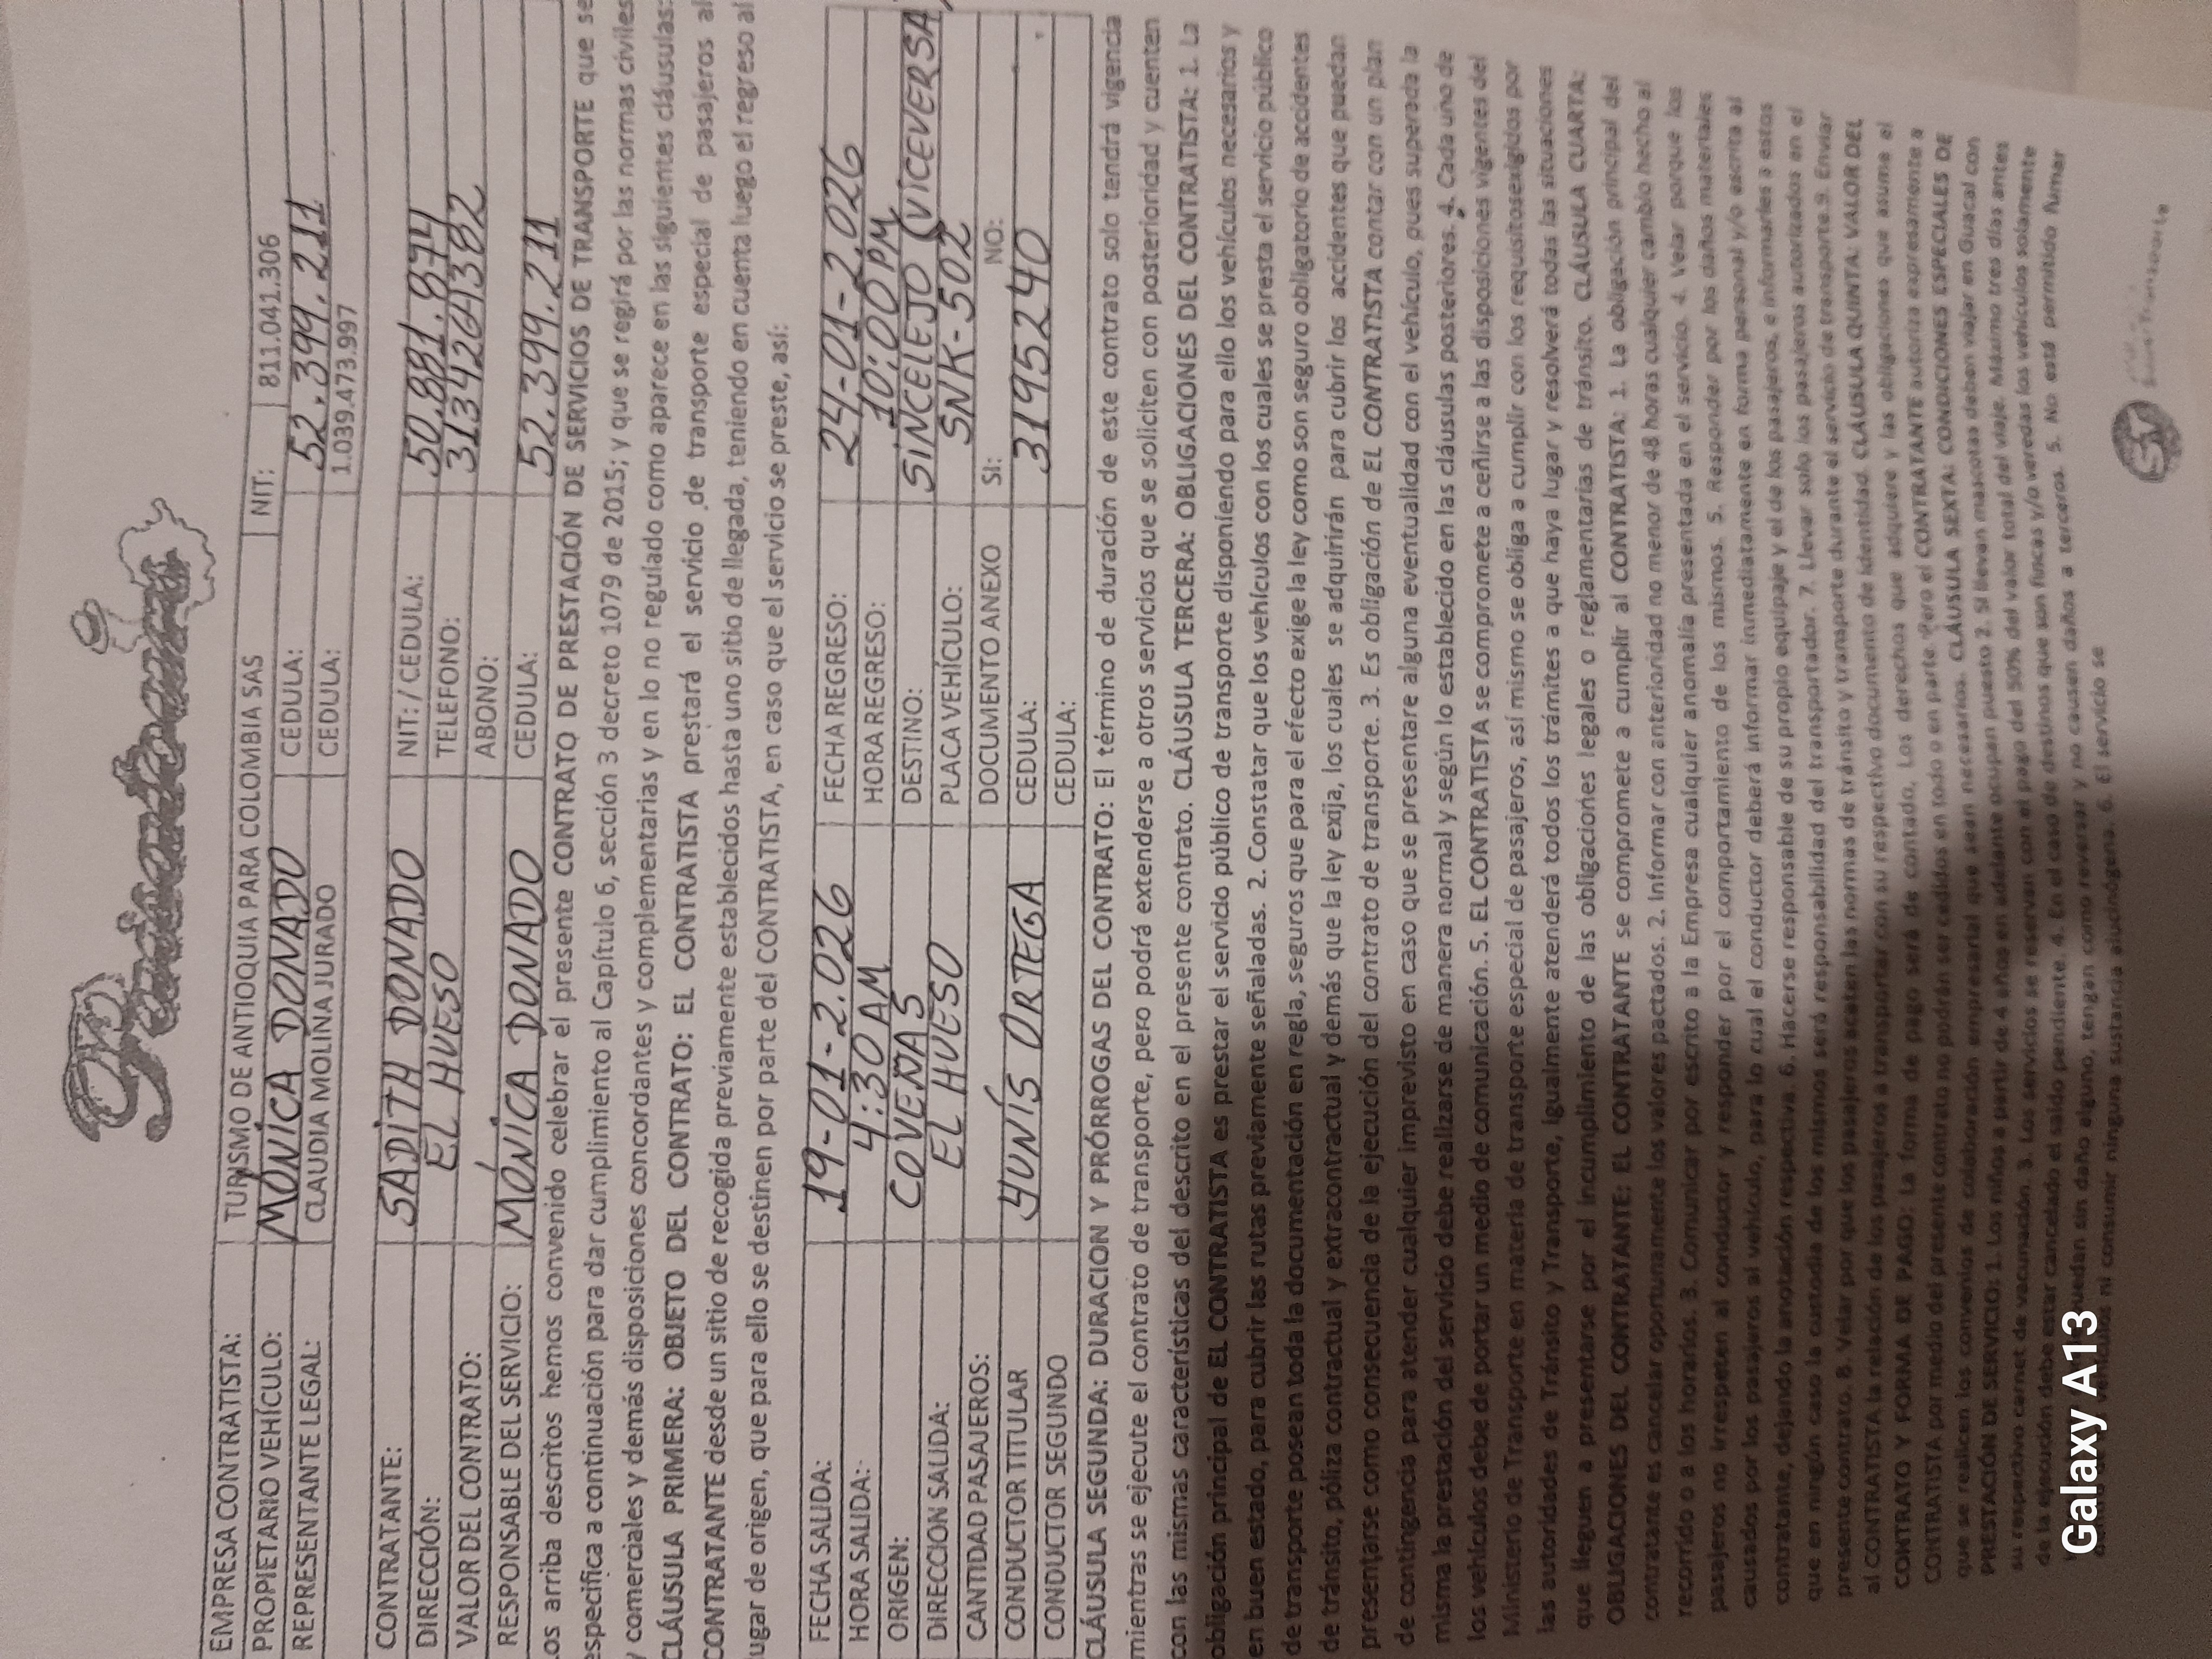 EMPRESA CONTRATISTA: TURISMO DE ANTIOQUIA PARA COLOMBIA SAS NIT: 811.041.306
PROPIETARIO VEHÍCULO: MÓNICA DONADO CEDULA: 52.399.211
REPRESENTANTE LEGAL: CLAUDIA MOLINA JURADO CEDULA: 1.039.473.997
CONTRATANTE: SADITH DONADO NIT: / CEDULA: 50.881.874
DIRECCIÓN: EL HUESO TELEFONO: 3134264382
VALOR DEL CONTRATO: ABONO:
RESPONSABLE DEL SERVICIO: MÓNICA DONADO CEDULA: 52.399.211
os arriba descritos hemos convenido celebrar el presente CONTRATO DE PRESTACIÓN DE SERVICIOS DE TRANSPORTE que se
especifica a continuación para dar cumplimiento al Capítulo 6, sección 3 decreto 1079 de 2015; y que se regirá por las normas civiles
y comerciales y demás disposiciones concordantes y complementarias y en lo no regulado como aparece en las siguientes cláusulas:
CLÁUSULA PRIMERA: OBJETO DEL CONTRATO: EL CONTRATISTA prestará el servicio de transporte especial de pasajeros al
CONTRATANTE desde un sitio de recogida previamente establecidos hasta uno sitio de llegada, teniendo en cuenta luego el regreso al
ugar de origen, que para ello se destinen por parte del CONTRATISTA, en caso que el servicio se preste, así:
FECHA SALIDA: 19-01-2.026 FECHA REGRESO: 24-01-2.026
HORA SALIDA: 4:30 AM HORA REGRESO: 10:00 PM
ORIGEN: COVEÑAS DESTINO: SINCELEJO VICEVERSA
DIRECCION SALIDA: EL HUESO PLACA VEHÍCULO: SNK-502
CANTIDAD PASAJEROS: DOCUMENTO ANEXO SI: NO:
CONDUCTOR TITULAR YUNÍS ORTEGA CEDULA: 3195240
CONDUCTOR SEGUNDO CEDULA:
CLÁUSULA SEGUNDA: DURACION Y PRÓRROGAS DEL CONTRATO: El término de duración de este contrato solo tendrá vigencia
mientras se ejecute el contrato de transporte, pero podrá extenderse a otros servicios que se soliciten con posterioridad y cuenten
con las mismas características del descrito en el presente contrato. CLÁUSULA TERCERA: OBLIGACIONES DEL CONTRATISTA: 1. La
obligación principal de EL CONTRATISTA es prestar el servicio público de transporte disponiendo para ello los vehículos necesarios y
en buen estado, para cubrir las rutas previamente señaladas. 2. Constatar que los vehículos con los cuales se presta el servicio público
de transporte posean toda la documentación en regla, seguros que para el efecto exige la ley como son seguro obligatorio de accidentes
de tránsito, póliza contractual y extracontractual y demás que la ley exija, los cuales se adquirirán para cubrir los accidentes que puedan
presentarse como consecuencia de la ejecución del contrato de transporte. 3. Es obligación de EL CONTRATISTA contar con un plan
de contingencia para atender cualquier imprevisto en caso que se presentare alguna eventualidad con el vehículo, pues superada la
misma la prestación del servicio debe realizarse de manera normal y según lo establecido en las cláusulas posteriores. 4. Cada uno de
los vehículos debe de portar un medio de comunicación. 5. EL CONTRATISTA se compromete a ceñirse a las disposiciones vigentes del
Ministerio de Transporte en materia de transporte especial de pasajeros, así mismo se obliga a cumplir con los requisitosexigidos por
las autoridades de Tránsito y Transporte, igualmente atenderá todos los trámites a que haya lugar y resolverá todas las situaciones
que lleguen a presentarse por el incumplimiento de las obligaciones legales o reglamentarias de tránsito. CLÁUSULA CUARTA:
OBLIGACIONES DEL CONTRATANTE: EL CONTRATANTE se compromete a cumplir al CONTRATISTA: 1. La obligación principal del
contratante es cancelar oportunamente los valores pactados. 2. Informar con anterioridad no menor de 48 horas cualquier cambio hecho al
recorrido o a los horarios. 3. Comunicar por escrito a la Empresa cualquier anomalía presentada en el servicio. 4. Velar porque los
pasajeros no irrespeten al conductor y responder por el comportamiento de los mismos. 5. Responder por los daños materiales
causados por los pasajeros al vehículo, para lo cual el conductor deberá informar inmediatamente en forma personal y/o escrita al
contratante, dejando la anotación respectiva. 6. Hacerse responsable de su propio equipaje y el de los pasajeros, e informarles a estos
que en ningún caso la custodia de los mismos será responsabilidad del transportador. 7. Llevar solo los pasajeros autorizados en el
presente contrato. 8. Velar por que los pasajeros acaten las normas de tránsito y transporte durante el servicio de transporte.9. Enviar
al CONTRATISTA la relación de los pasajeros a transportar con su respectivo documento de identidad. CLÁUSULA QUINTA: VALOR DEL
CONTRATO Y FORMA DE PAGO: La forma de pago será de contado. Los derechos que adquiere y las obligaciones que asume el
CONTRATISTA por medio del presente contrato no podrán ser cedidos en todo o en parte. Pero el CONTRATANTE autoriza expresamente a
que se realicen los convenios de colaboración empresarial que sean necesarios. CLÁUSULA SEXTA: CONDICIONES ESPECIALES DE
PRESTACIÓN DE SERVICIO: 1. Los niños a partir de 4 años en adelante ocupan puesto 2. Si llevan mascotas deben viajar en Guacal con
su respectivo carnet de vacunación. 3. Los servicios se reservan con el pago del 50% del valor total del viaje. Máximo tres días antes
de la ejecución debe estar cancelado el saldo pendiente. 4. En el caso de destinos que son fincas y/o veredas los vehículos solamente
puedan sin daño alguno, tengan como reversar y no causen daños a terceros. 5. No está permitido fumar
ni consumir ninguna sustancia alucinógena. 6. El servicio se
Galaxy A13